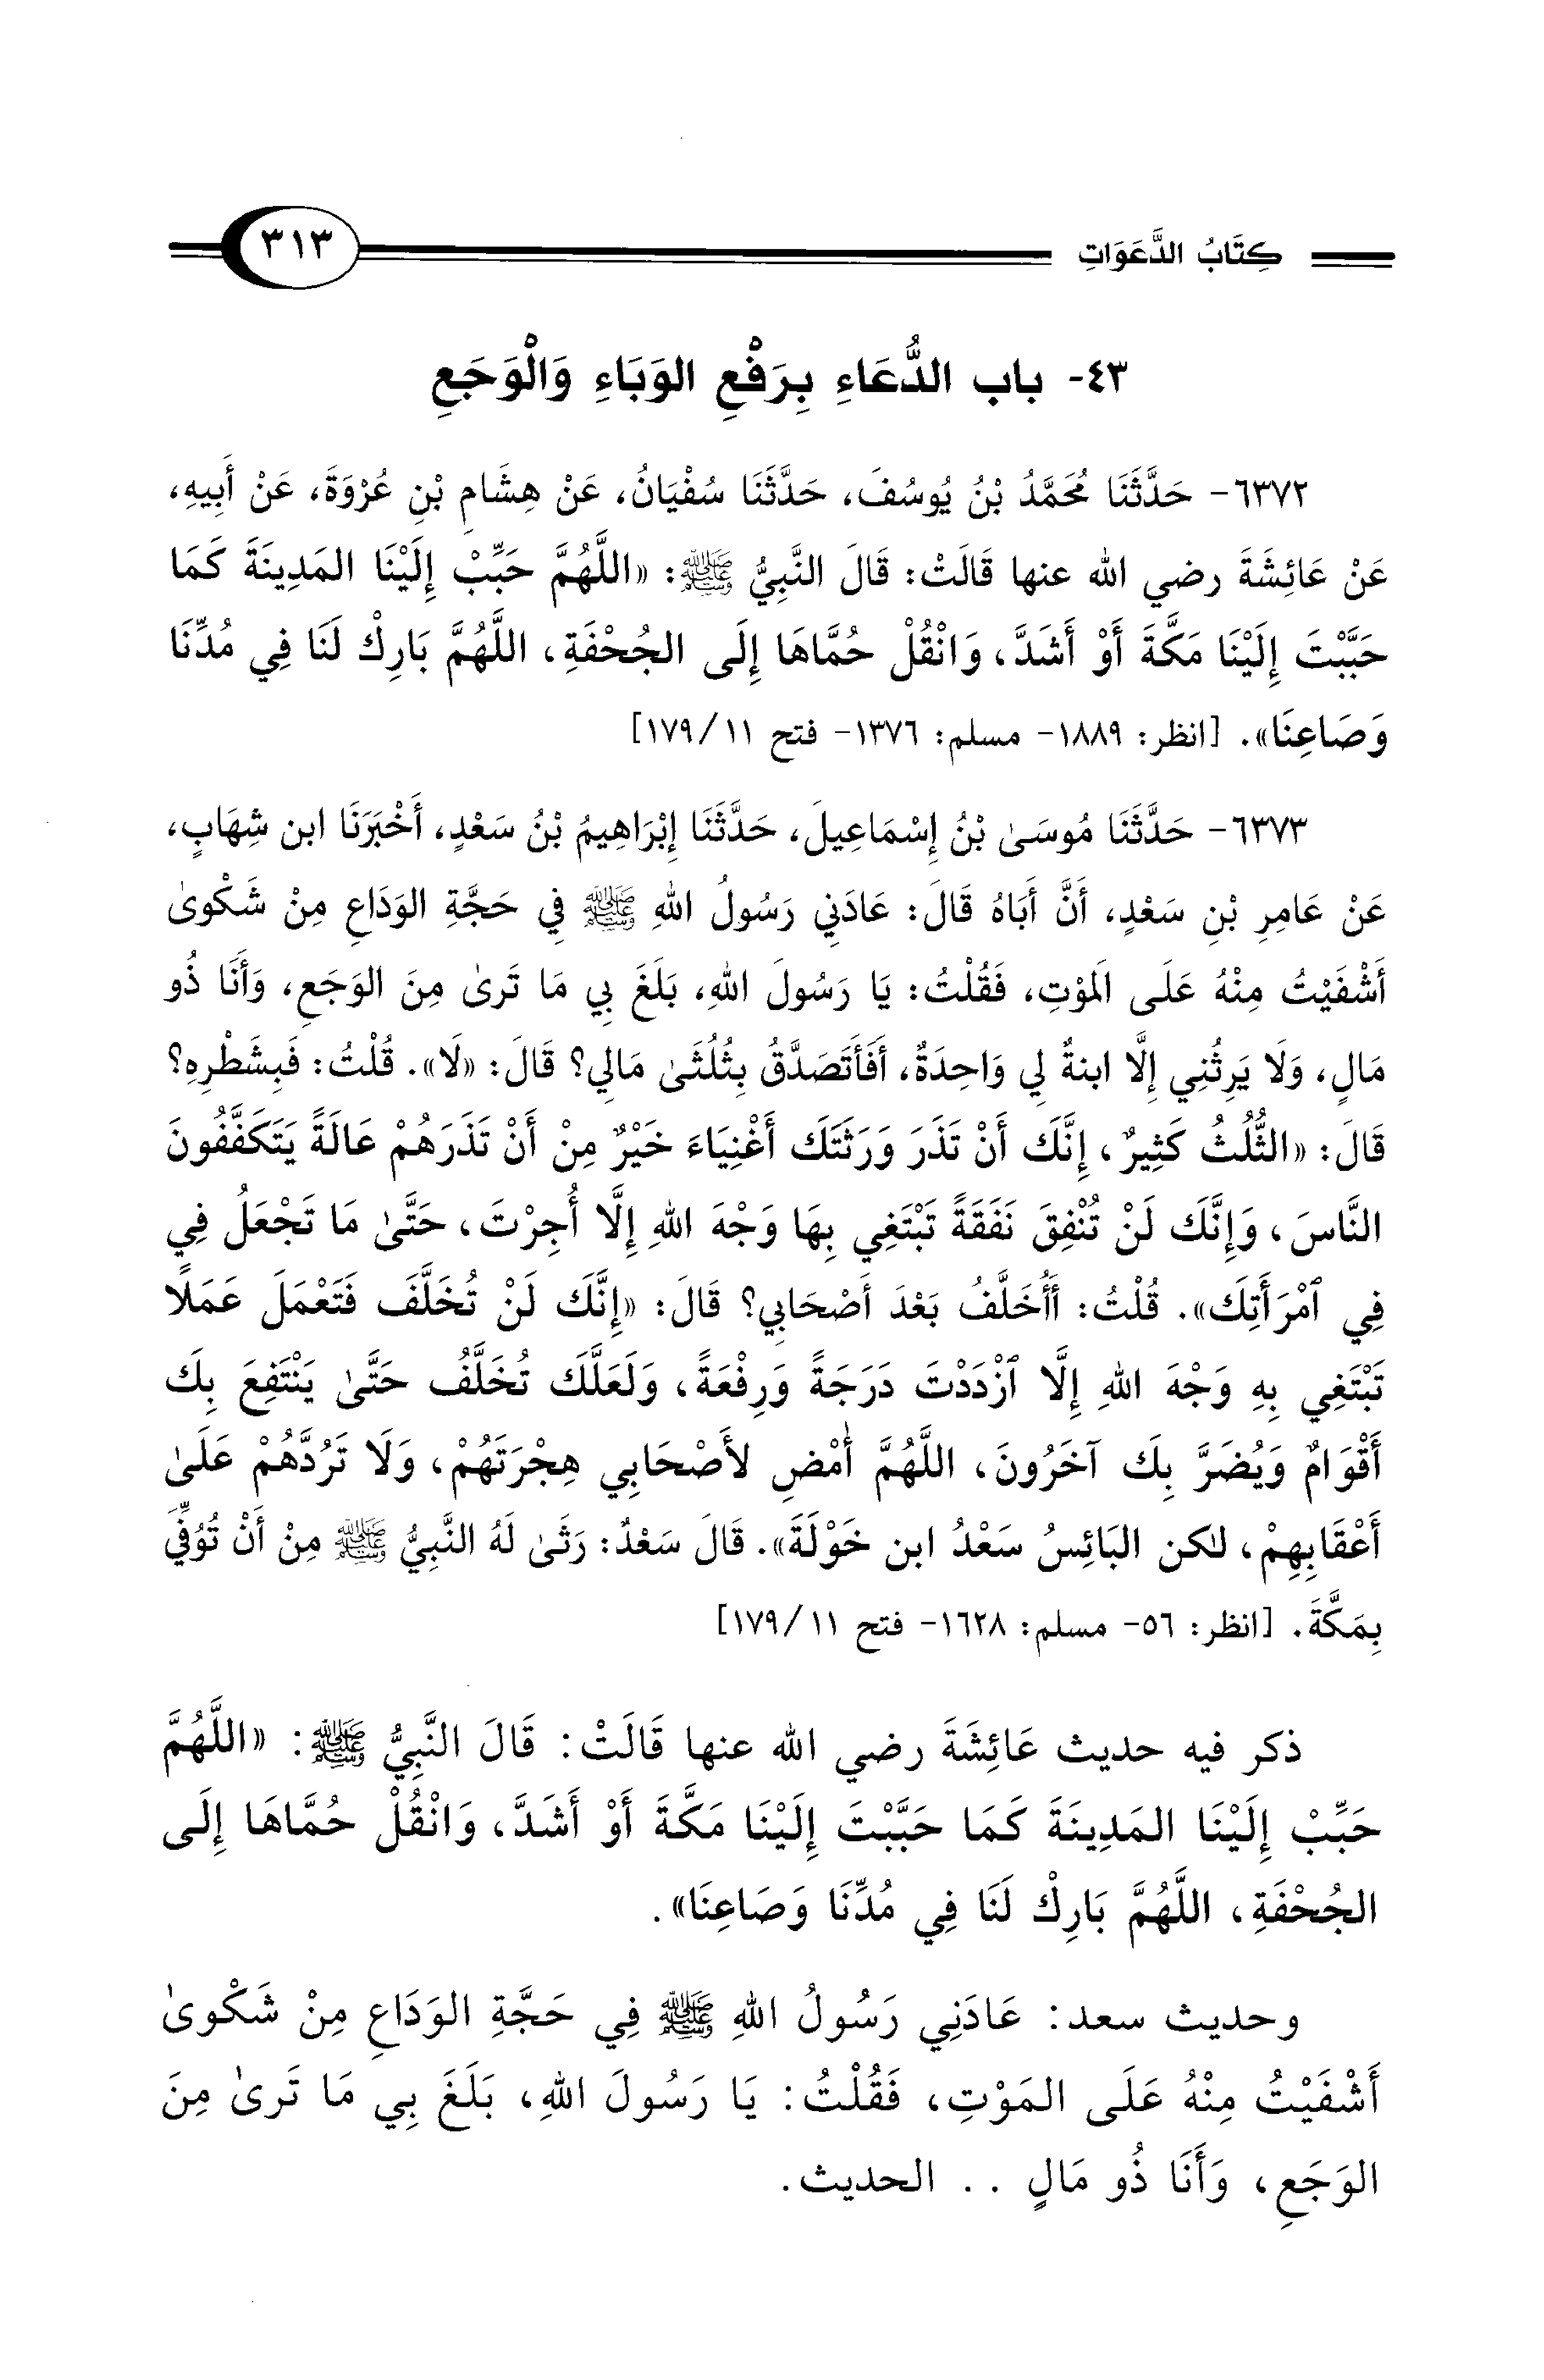 كِتَابُ الدَّعَوَاتِ ٣١٣
٤٣- باب الدُّعَاءِ بِرَفْعِ الوَبَاءِ وَالْوَجَعِ
٦٣٧٢- حَدَّثَنَا مُحَمَّدُ بْنُ يُوسُفَ، حَدَّثَنَا سُفْيَانُ، عَنْ هِشَامِ بْنِ عُرْوَةَ، عَنْ أَبِيهِ،
عَنْ عَائِشَةَ رضي الله عنها قَالَتْ: قَالَ النَّبِيُّ ﷺ: «اللَّهُمَّ حَبِّبْ إِلَيْنَا المَدِينَةَ كَمَا
حَبَّبْتَ إِلَيْنَا مَكَّةَ أَوْ أَشَدَّ، وَانْقُلْ حُمَّاهَا إِلَى الجُحْفَةِ، اللَّهُمَّ بَارِكْ لَنَا فِي مُدِّنَا
وَصَاعِنَا». [انظر: ١٨٨٩- مسلم: ١٣٧٦- فتح ١١/ ١٧٩]
٦٣٧٣- حَدَّثَنَا مُوسَىٰ بْنُ إِسْمَاعِيلَ، حَدَّثَنَا إِبْرَاهِيمُ بْنُ سَعْدٍ، أَخْبَرَنَا ابن شِهَابٍ،
عَنْ عَامِرِ بْنِ سَعْدٍ، أَنَّ أَبَاهُ قَالَ: عَادَنِي رَسُولُ اللهِ ﷺ فِي حَجَّةِ الوَدَاعِ مِنْ شَكْوىٰ
أَشْفَيْتُ مِنْهُ عَلَى اَلمَوْتِ، فَقُلْتُ: يَا رَسُولَ اللهِ، بَلَغَ بِي مَا تَرىٰ مِنَ الوَجَعِ، وَأَنَا ذُو
مَالٍ، وَلَا يَرِثُنِي إِلَّا ابنةٌ لِي وَاحِدَةٌ، أَفَأَتَصَدَّقُ بِثُلُثَىٰ مَالِي؟ قَالَ: «لَا». قُلْتُ: فَبِشَطْرِهِ؟
قَالَ: «الثُّلُثُ كَثِيرٌ، إِنَّكَ أَنْ تَذَرَ وَرَثَتَكَ أَغْنِيَاءَ خَيْرٌ مِنْ أَنْ تَذَرَهُمْ عَالَةً يَتَكَفَّفُونَ
النَّاسَ، وَإِنَّكَ لَنْ تُنْفِقَ نَفَقَةً تَبْتَغِي بِهَا وَجْهَ اللهِ إِلَّا أُجِرْتَ، حَتَّىٰ مَا تَجْعَلُ فِي
فِي ٱمْرَأَتِكَ». قُلْتُ: أَأُخَلَّفُ بَعْدَ أَصْحَابِي؟ قَالَ: «إِنَّكَ لَنْ تُخَلَّفَ فَتَعْمَلَ عَمَلًا
تَبْتَغِي بِهِ وَجْهَ اللهِ إِلَّا ٱزْدَدْتَ دَرَجَةً وَرِفْعَةً، وَلَعَلَّكَ تُخَلَّفُ حَتَّىٰ يَنْتَفِعَ بِكَ
أَقْوَامٌ وَيُضَرَّ بِكَ آخَرُونَ، اللَّهُمَّ أَمْضِ لأَصْحَابِي هِجْرَتَهُمْ، وَلَا تَرُدَّهُمْ عَلَىٰ
أَعْقَابِهِمْ، لكن البَائِسُ سَعْدُ ابن خَوْلَةَ». قَالَ سَعْدٌ: رَثَىٰ لَهُ النَّبِيُّ ﷺ مِنْ أَنْ تُوُفِّيَ
بِمَكَّةَ. [انظر: ٥٦- مسلم: ١٦٢٨- فتح ١١/ ١٧٩]
ذكر فيه حديث عَائِشَةَ رضي الله عنها قَالَتْ: قَالَ النَّبِيُّ ﷺ: «اللَّهُمَّ
حَبِّبْ إِلَيْنَا المَدِينَةَ كَمَا حَبَّبْتَ إِلَيْنَا مَكَّةَ أَوْ أَشَدَّ، وَانْقُلْ حُمَّاهَا إِلَى
الجُحْفَةِ، اللَّهُمَّ بَارِكْ لَنَا فِي مُدِّنَا وَصَاعِنَا».
وحديث سعد: عَادَنِي رَسُولُ اللهِ ﷺ فِي حَجَّةِ الوَدَاعِ مِنْ شَكْوىٰ
أَشْفَيْتُ مِنْهُ عَلَى المَوْتِ، فَقُلْتُ: يَا رَسُولَ اللهِ، بَلَغَ بِي مَا تَرىٰ مِنَ
الوَجَعِ، وَأَنَا ذُو مَالٍ . . الحديث.